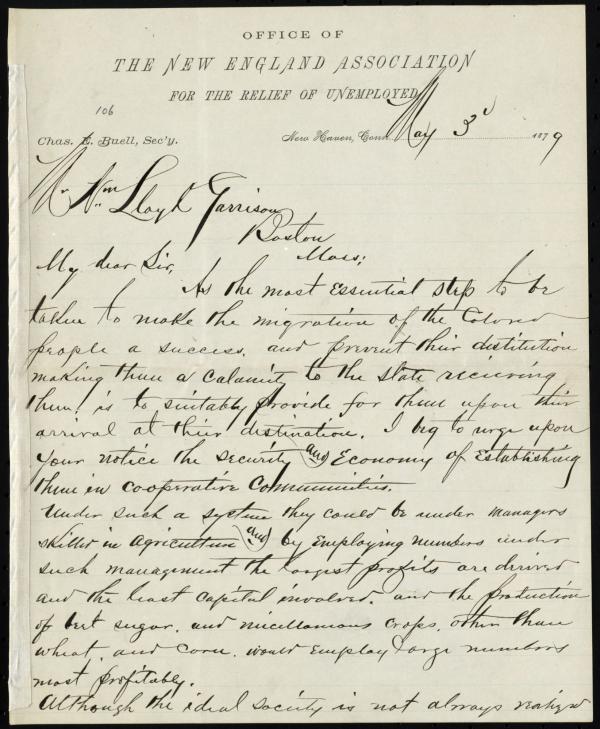 OFFICE OF
THE NEW ENGLAND ASSOCIATION
FOR THE RELIEF OF UNEMPLOYED
106
Chas. E. Buell, Sec'y.
New Haven, Conn. May 3d 1879
Mr Wm Lloyd Garrison
Boston
Mass;
My dear Sir,
As the most essential step to be
taken to make the migration of the Colored
people a success, and prevent their distitution
making them a calamity to the state receiving
them, is to suitably provide for them upon their
arrival at their destination. I beg to urge upon
your notice the security and Economy of Establishing
them in cooperative Communities.
Under such a system they could be under managers
skilled in agriculture and by Employing numbers under
such management the largest profits are derived
and the least capital involved. and the production
of beet sugar, and micellanious crops, other than
wheat, and corn, would Employ large numbers
most profitably.
Although the ideal society is not always realized